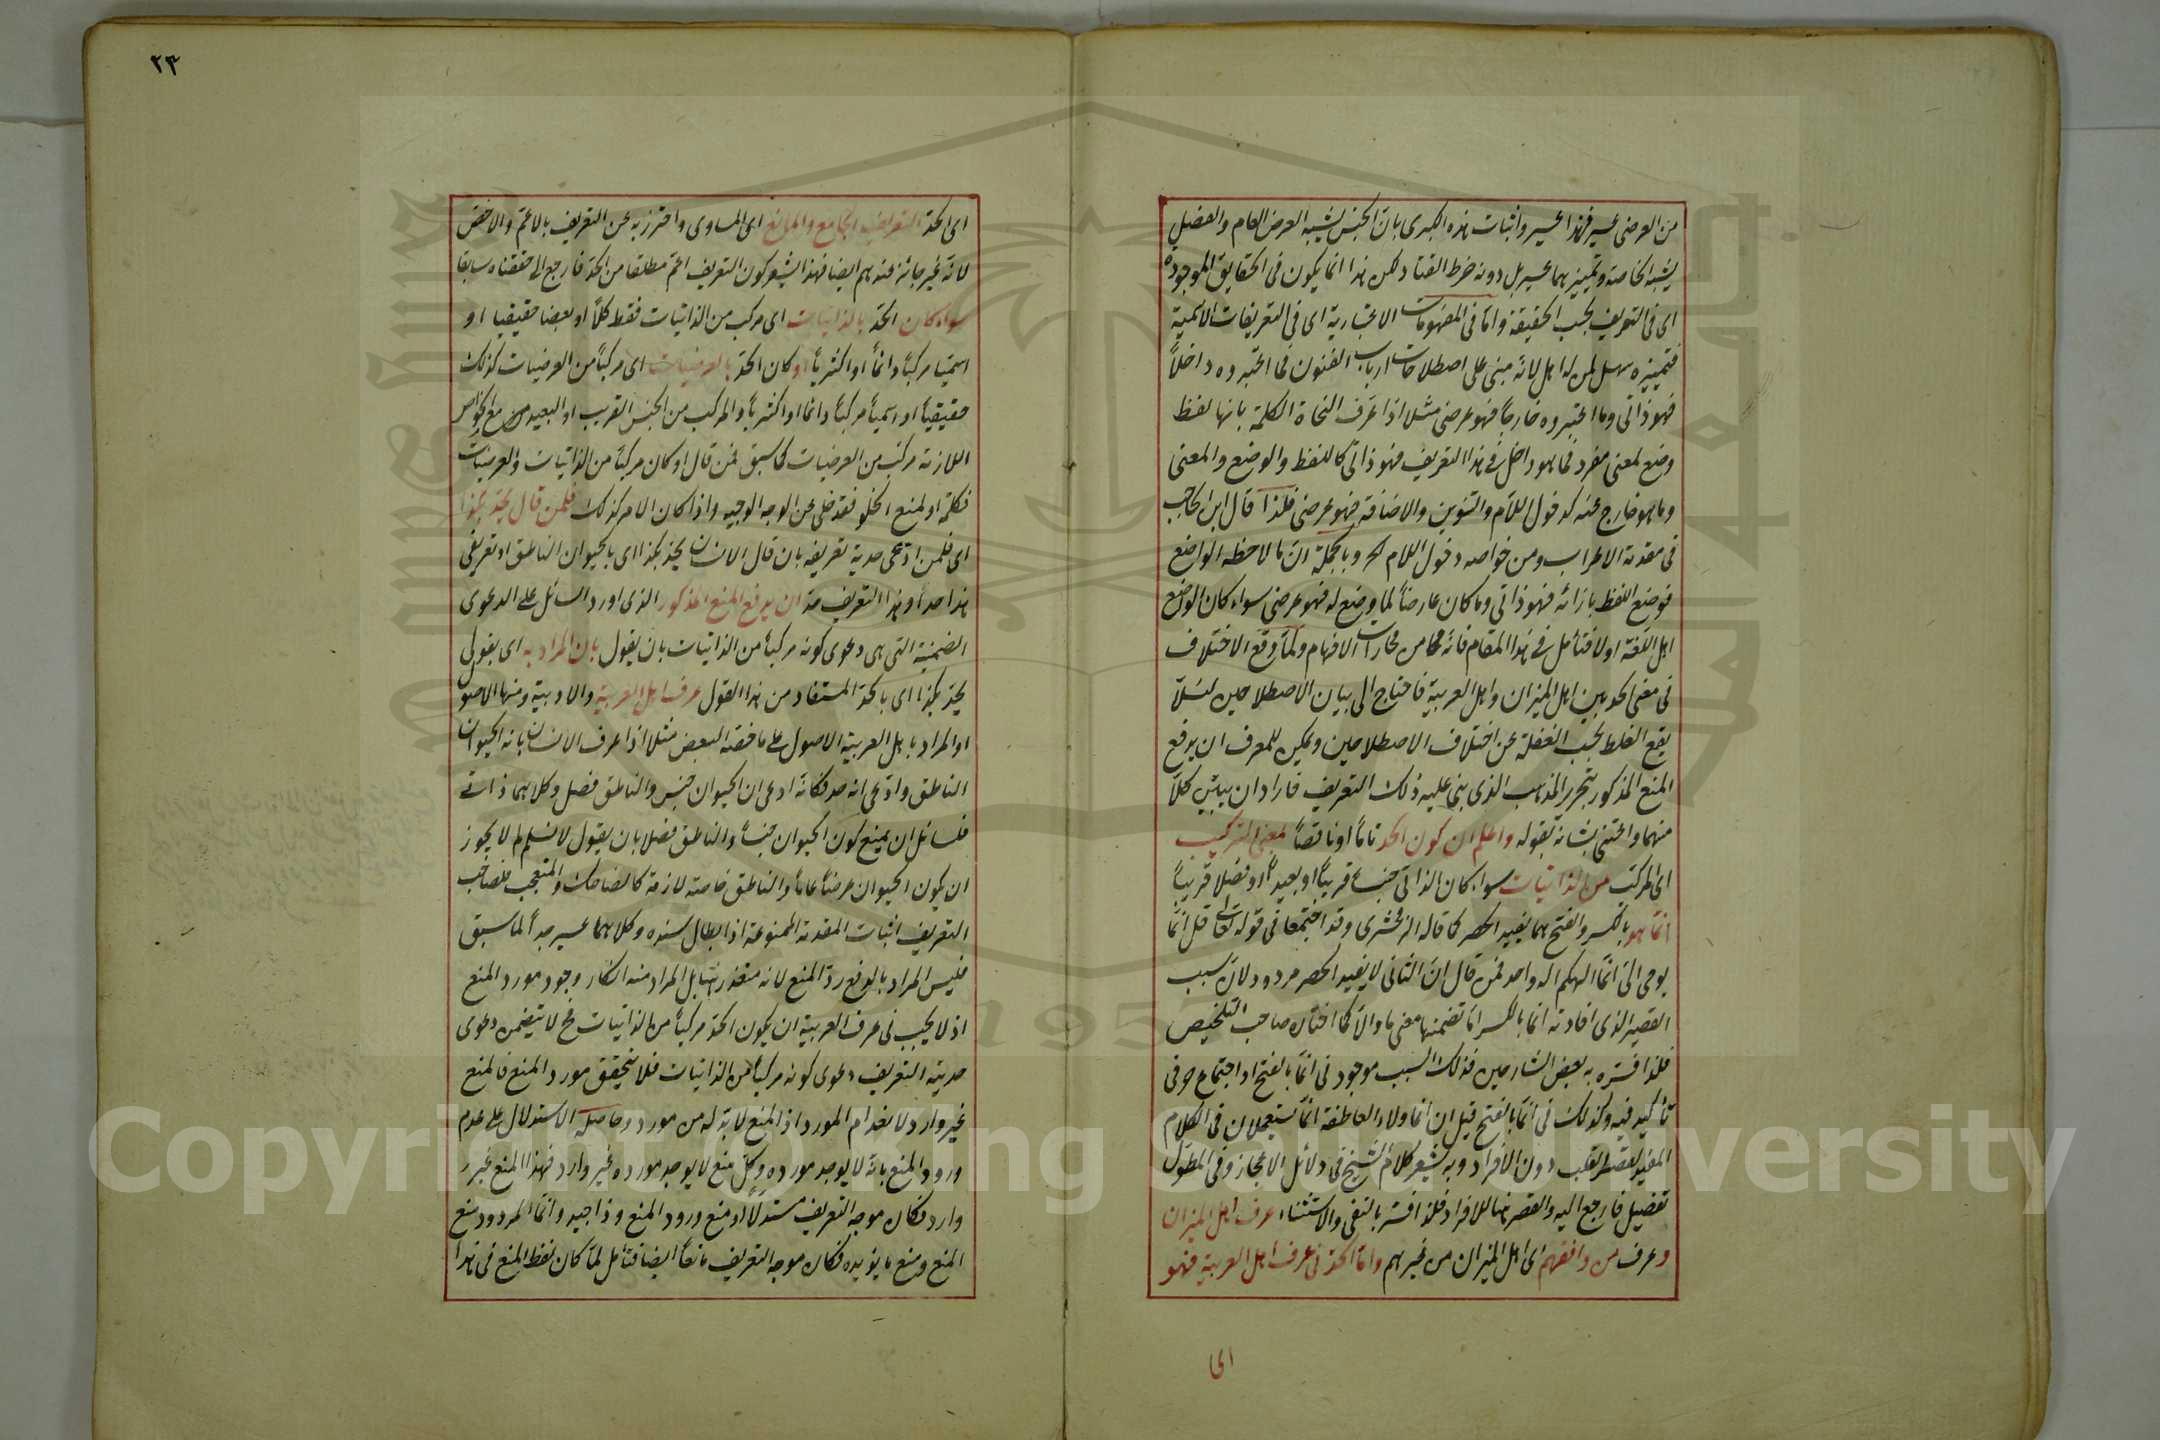 من العرضى عسير فهذا عسير واثبات هذه الكبرى بان الجنس يشبه العرض العام والفصل
يشبه الخاصة وتمييزهما عسير بل دونه خرط القتاد لكن هذا انما يكون فى الحقايق الموجودة
اى فى التعريف بحسب الحقيقة واما فى المفهومات الاعتبارية اى فى التعريفات الاسمية
فتمييزه سهل لمن له اهل لانه مبنى على اصطلاحات ارباب الفنون فما اعتبروه داخلاً
فهو ذاتى وما اعتبروه خارجاً فهو عرضى مثلا اذا عرف النحاة الكلمة بانها لفظ
وضع لمعنى مفرد فما هو داخل فى هذا التعريف فهو ذاتى كاللفظ والوضع والمعنى
وما هو خارج عنه كدخول اللام والتنوين والاضافة فهو عرضى فلذا قال ابن الحاجب
فى مقدمة الاعراب ومن خواصه دخول اللام الخ وبالجملة ان ما لاحظه الواضع
فوضع اللفظ بازائه فهو ذاتى وما كان عارضاً لما وضع له فهو عرضى سواء كان الواضع
اهل اللغة اولا فتأمل فى هذا المقام فانه من محارات الافهام ولما وقع الاختلاف
فى معنى الحد بين اهل الميزان واهل العربية فاحتاج الى بيان الاصطلاحين لئلا
يقع الغلط بحسب الغفلة عن اختلاف الاصطلاحين ويمكن للمعرف ان يدفع
المنع المذكور بتحرير المذهب الذى بنى عليه ذلك التعريف فاراد ان يبين كلا
منهما واعتنى بشانه بقوله واعلم ان كون الحد تاماً او ناقصاً بمعنى التركيب
اى المركب من الذاتيات سواء كان الذاتى جنساً قريباً او بعيداً او فصلا قريباً
انما هو بالكسر والفتح هما يفيد الحصر كما قاله الزمخشرى وقد اجتمعا فى قوله تعالى قل انما
يوحى الى انما الهكم اله واحد فمن قال ان الثانى لا يفيد الحصر مردود لان سبب
القصر الذى افادته انما بالكسر اما تضمنها معنى ما والا كما اختاره صاحب التلخيص
فلذا فسره به بعض الشارحين فذلك السبب موجود فى انما بالفتح او اجتماع حرفى
تأكيد فيه وكذلك فى انما بالفتح قيل ان انما ولاء العاطفة انما يستعملان فى الكلام
المفيد لقصر القلب دون الافراد وبه يشعر كلام الشيخ فى دلائل الاعجاز وفى المطول
تفصيل فارجع اليه والقصر هنا للافراد فلذا فسر بالنفى والاستثناء عرف اهل الميزان
وعرف من وافقهم اى اهل الميزان من غيرهم واما الحد فى عرف اهل العربية فهو
اى
٢٣
اى الحد التعريف الجامع والمانع اى المساوى واحترز به عن التعريف بالاعم والاخص
لانه غير جائز عندهم ايضا فهذا يشعر كون التعريف اعم مطلقا من الحد فارجع الى ما حققناه سابقا
سواء كان الحد بالذاتيات اى مركب من الذاتيات فقط كلاً او بعضا حقيقيا او
اسميا مركباً دائماً او اكثرياً او كان الحد بالعرضيات اى مركباً من العرضيات كذلك
حقيقياً او اسمياً مركباً دائما او اكثرياً والمركب من الجنس القريب او البعيد مع الخواص
اللازمة مركب من العرضيات كما سبق فمن قال او كان مركباً من الذاتيات والعرضيات
فكلمة او لمنع الخلو فقد خلى عن الوجه الوجيه واذا كان الامر كذلك فلمن قال يحد بكذا
اى فلمن ادعى حدية تعريفه بان قال الانسان يحد بكذا اى بالحيوان الناطق او تعريفى
هذا حد او هذا التعريف حد ان يدفع المنع المذكور الذى اورد السائل على الدعوى
الضمنية التى هى دعوى كونه مركباً من الذاتيات بان يقول بان المراد به اى بقولى
يحد بكذا اى بالحد المستفاد من هذا القول عرف اهل العربية والادبية ومنها الاصو
او المراد باهل العربية الاصول على ما خصه البعض مثلا اذا عرف الانسان بانه الحيوان
الناطق وادعى انه حد فكانه ادعى ان الحيوان جنس والناطق فصل وكلاهما ذاتى
فلسائل ان يمنع كون الحيوان جنساً والناطق فصلا بان يقول لا نسلم لم لا يجوز
ان يكون الحيوان عرضاً عاماً والناطق خاصة لازمة كالضاحك والمتعجب فلصاحب
التعريف اثبات المقدمة الممنوعة اذ ابطال سنده وكلاهما عسير جداً لما سبق
فليس المراد بالدفع رد المنع لانه متعذر بل المراد منه انكار وجود مورد المنع
اذ لا يجب فى عرف العربية ان يكون الحد مركباً من الذاتيات فح لا يتضمن دعوى
حدية التعريف دعوى كونه مركباً من الذاتيات فلا يتحقق مورد المنع فالمنع
غير وارد لانعدام المورد اذ المنع لابد له من مورد وحاصله الاستدلال على عدم
ورود المنع بانه لا يوجد مورده وكل منع لا يوجد مورده غير وارد فهذا المنع غير
وارد فكان موجه التعريف مستدلاً او منع ورود المنع وذا جيد وانما المردود منع
المنع ومنع ما يؤيده فكان موجه التعريف مانعاً ايضا فتأمل لما كان لفظ المنع فى هذا
Copyright © King Saud University
1957